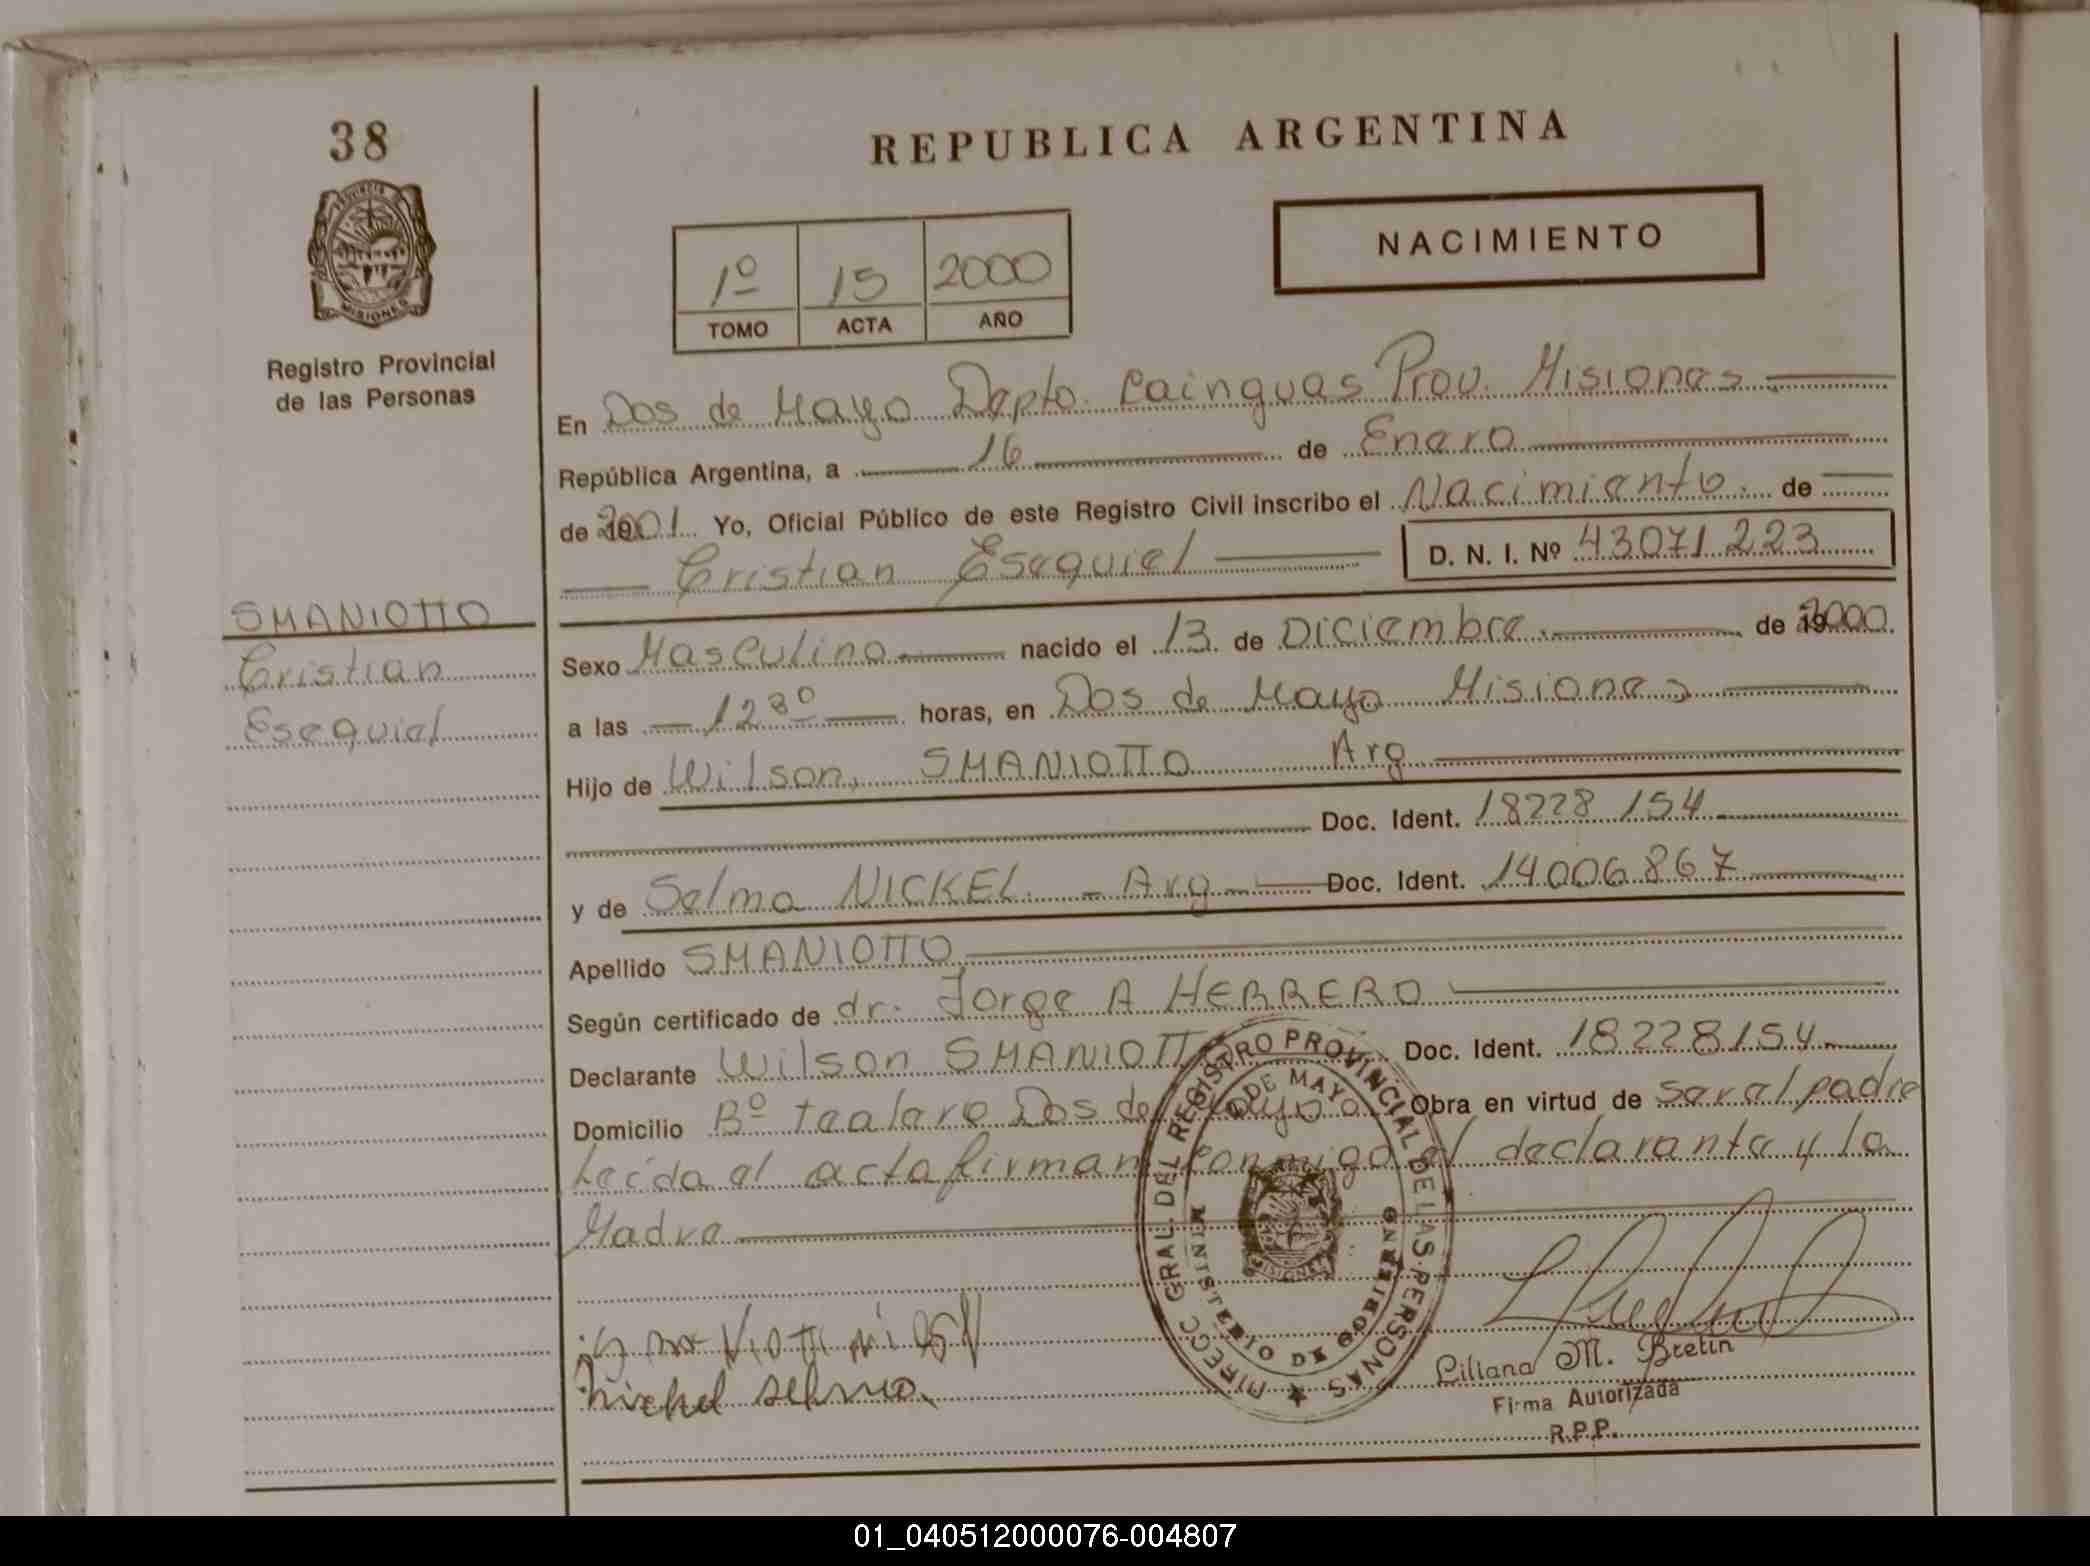 38
REPUBLICA ARGENTINA
NACIMIENTO
1º 15 2000
TOMO ACTA AÑO
PROVINCIA
MISIONES
Registro Provincial
de las Personas
En Dos de Mayo Depto. Cainguas Prov. Misiones
República Argentina, a 16 de Enero
de 2001 Yo, Oficial Público de este Registro Civil inscribo el Nacimiento de
Cristian Esequiel D. N. I. Nº 43071223
SMANIOTTO
Cristian
Esequiel
Sexo Masculino nacido el 13 de Diciembre de 2000
a las 12 30 horas, en Dos de Mayo Misiones
Hijo de Wilson SMANIOTTO Arg
Doc. Ident. 18228154
y de Selma NICKEL - Arg - Doc. Ident. 14006867
Apellido SMANIOTTO
Según certificado de dr. Jorge A HERRERO
Declarante Wilson SMANIOTT Doc. Ident. 18228154
Domicilio Bº tealero Dos de Mayo Obra en virtud de ser el padre
Leída el acta firman conmigo el declarante y la
Madre
DIRECC GRAL. DEL REGISTRO PROVINCIAL DE LAS PERSONAS
DE MAYO
MINISTERIO DE GOBIERNO
MISIONES
Liliana M. Bretin
Firma Autorizada
R.P.P.
01_040512000076-004807